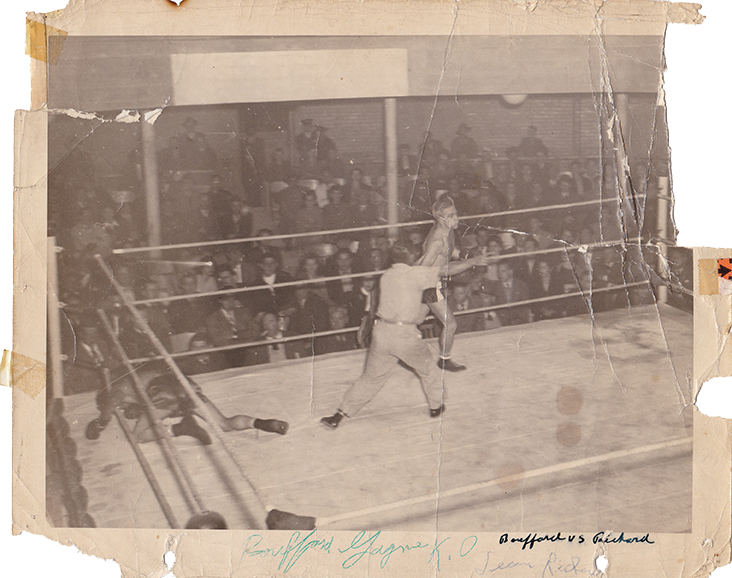 Boufford Gagne K.O
Boufford vs Richard
Jean Richard